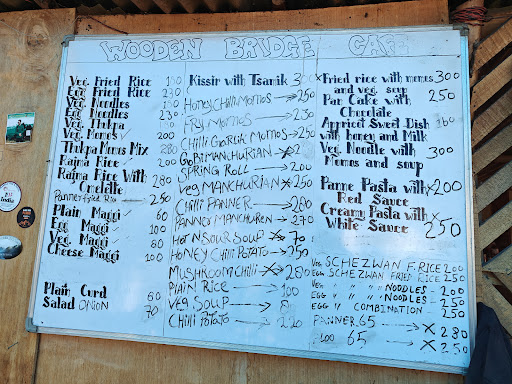 WOODEN BRIDGE CAFE
Veg. Fried Rice 150
Egg Fried Rice 230
Veg Noodles 150
Egg Noodles 230
Veg Thukpa
Veg Momos 200
Thukpa Momos Mix 280
Rajma Rice 200
Rajma Rice With 280
Omelatte
Panner Fried Rice 250
Plain Maggi 60
Egg Maggi 100
Veg. Maggi 80
Cheese Maggi 100
Plain Curd 60
Salad ONION 70
Kissir with Tsamik 300
Honey Chilli Momos 250
Fry Momos 230
Chilli Garlik Momos 250
Gobi MANCHURIAN X
SPRING ROLL 200
Veg MANCHURIAN X 250
Chilli PANNER 280
PANNER MANCHUREN 270
Hot N SOUR SOUP X 70
HONEY Chilli POTATO 250
MUSHROOM Chilli X 280
PLAIN RICE 100
Veg SOUP
Chilli POTATO 220
Fried rice with momos 300
and veg. soup
Pan Cake with 250
Chocolate
Apprict Sweet Dish 160
with honey and Milk
Veg Noodle with 300
Momos and soup
Panne Pasta with X 200
Red Sauce
Creamy Pasta with X
White Sauce 250
Veg SCHEZWAN F. RICE 200
Egg SCHEZWAN FRIED RICE 250
Veg " " " NOODLES - 200
EGG " " " NOODLES - 250
EGG " " COMBINATION 250
PANNER 65 X 280
65 X 250